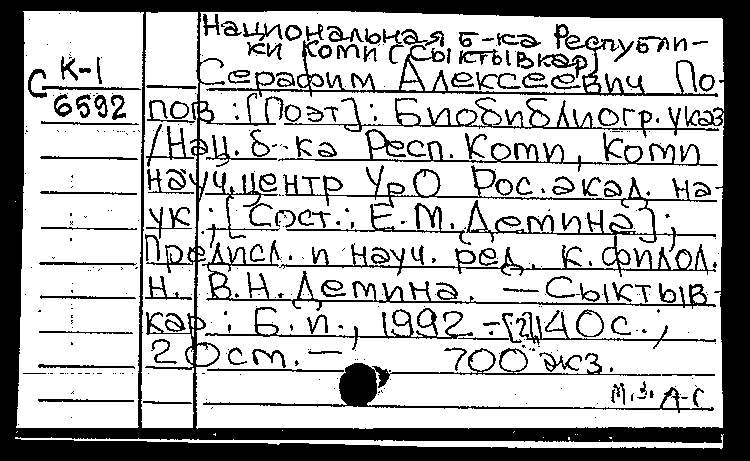 Национальная б-ка Республи-
ки Коми (Сыктывкар)
С К-1
6592
Серафим Алексеевич По-
пов : [Поэт] : Биобиблиогр. указ
/Нац. б-ка Респ. Коми, Коми
науч. центр УрО Рос. акад. на-
ук ; [Сост.: Е.М. Демина];
Предисл. и науч. ред. к. филол.
н. В.Н. Демина. — Сыктыв-
кар : Б.и., 1992. - [2], 40 с. ;
20 см. — 700 экз.
М.З. А-С